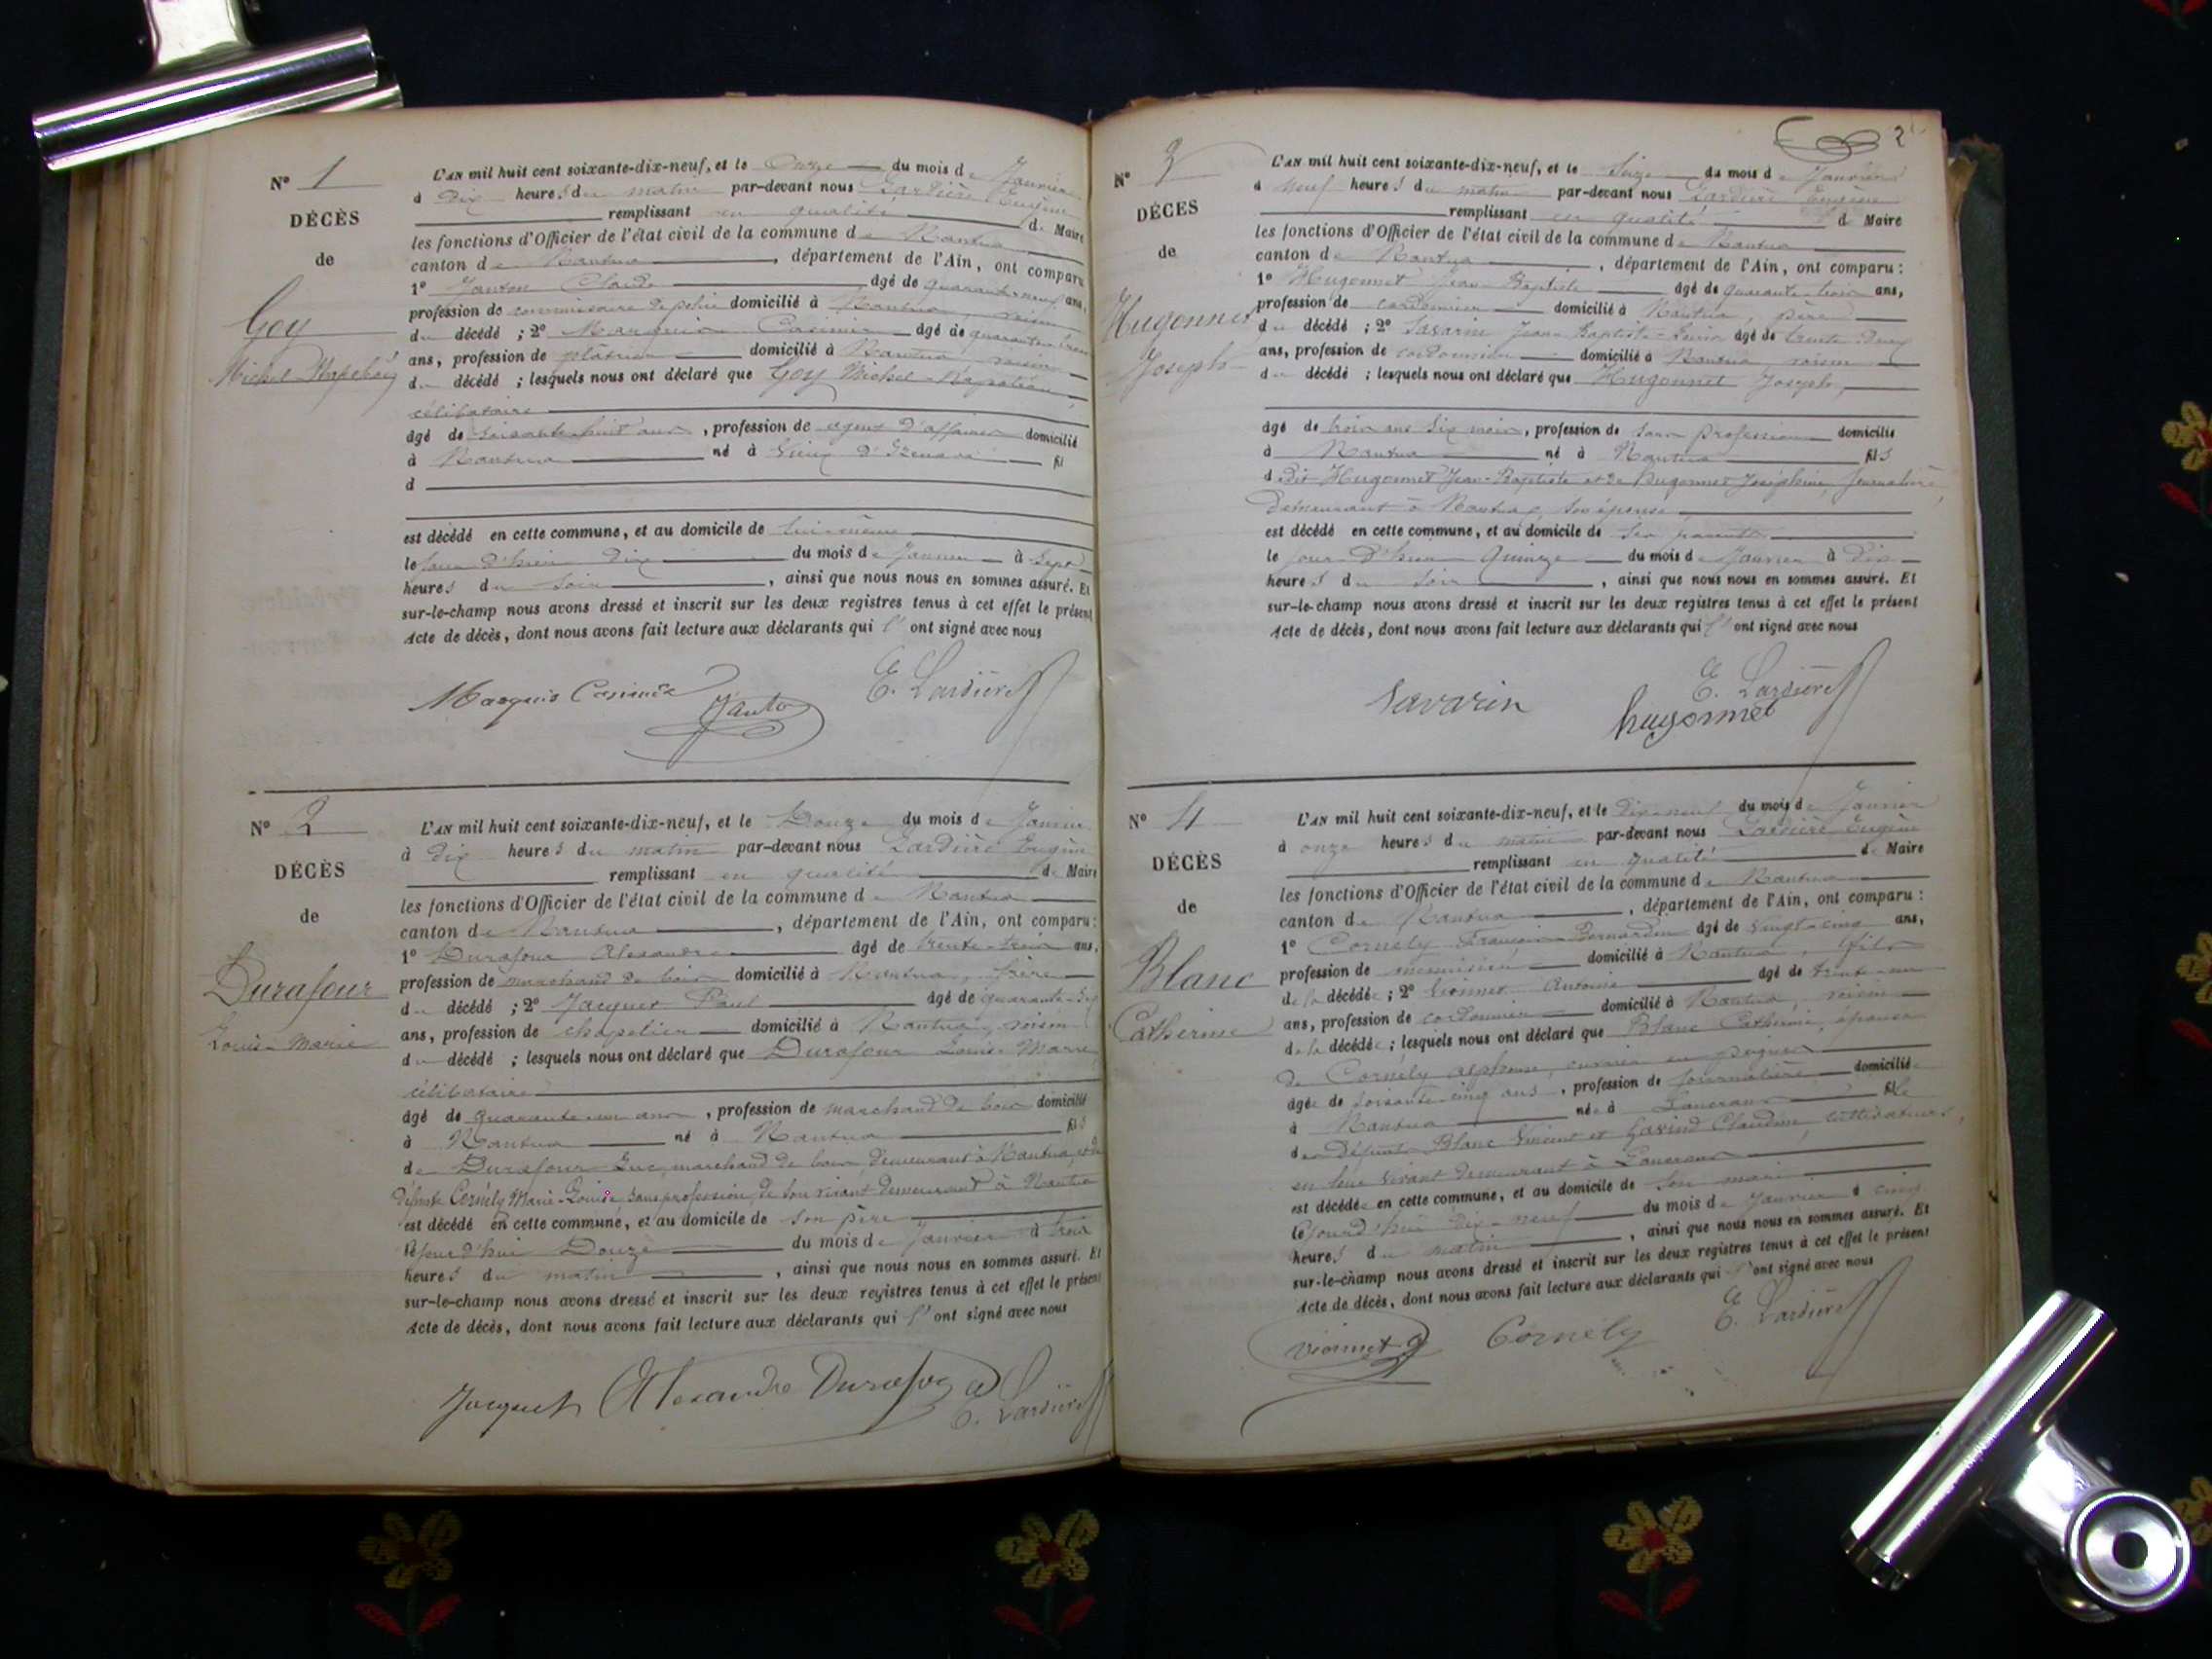 N° 1
DÉCÈS
de
Goy
Michel-Napoléon
L'AN mil huit cent soixante-dix-neuf, et le Onze du mois de Janvier
à Dix heures du matin par-devant nous Lardière Eugène
remplissant en qualité de Maire
les fonctions d'Officier de l'état civil de la commune de Nantua
canton de Nantua, département de l'Ain, ont comparu
1° Janton Claude âgé de quarante-neuf ans,
profession de commissaire de police domicilié à Nantua, voisin
du décédé ; 2° Marquis Casimir âgé de quarante
ans, profession de plâtrier domicilié à Nantua voisin
du décédé ; lesquels nous ont déclaré que Goy Michel-Napoléon,
célibataire
âgé de soixante-huit ans, profession de agent d'affaires domicilié
à Nantua né à Vieu d'Izenave fil
d
est décédé en cette commune, et au domicile de lui-même
le jour d'hier dix du mois de Janvier à Sept
heures du soir, ainsi que nous nous en sommes assuré. Et
sur-le-champ nous avons dressé et inscrit sur les deux registres tenus à cet effet le présent
Acte de décès, dont nous avons fait lecture aux déclarants qui l' ont signé avec nous
Marquis Casimir Janton E. Lardière
N° 2
DÉCÈS
de
Durafour
Louis-Marie
L'AN mil huit cent soixante-dix-neuf, et le Douze du mois de Janvier
à dix heures du matin par-devant nous Lardière Eugène
remplissant en qualité de Maire
les fonctions d'Officier de l'état civil de la commune de Nantua
canton de Nantua, département de l'Ain, ont comparu :
1° Durafour Alexandre âgé de trente-trois ans,
profession de marchand de bois domicilié à Nantua, frère
du décédé ; 2° Jacquet Paul âgé de quarante-six
ans, profession de chapelier domicilié à Nantua, voisin
du décédé ; lesquels nous ont déclaré que Durafour Louis-Marie
célibataire
âgé de quarante-un ans, profession de marchand de bois domicilié
à Nantua né à Nantua fils
de Durafour Luc, marchand de bois, demeurant à Nantua, et de
défunte Cornély Marie-Louise, sans profession, de son vivant demeurant à Nantua
est décédé en cette commune, et au domicile de son père
le jourd'hui Douze du mois de Janvier à trois
heures du matin, ainsi que nous nous en sommes assuré. Et
sur-le-champ nous avons dressé et inscrit sur les deux registres tenus à cet effet le présent
Acte de décès, dont nous avons fait lecture aux déclarants qui l' ont signé avec nous
Jacquet Alexandre Durafour E. Lardière
2
N° 3
DÉCÈS
de
Hugonnet
Joseph
L'AN mil huit cent soixante-dix-neuf, et le Seize du mois de Janvier
à neuf heures du matin par-devant nous Lardière Eugène
remplissant en qualité de Maire
les fonctions d'Officier de l'état civil de la commune de Nantua
canton de Nantua, département de l'Ain, ont comparu :
1° Hugonnet Jean-Baptiste âgé de quarante-trois ans,
profession de cordonnier domicilié à Nantua, père
du décédé ; 2° Savarin Jean-Baptiste âgé de trente-deux
ans, profession de cordonnier domicilié à Nantua voisin
du décédé ; lesquels nous ont déclaré que Hugonnet Joseph,
âgé de trois ans six mois, profession de sans profession domicilié
à Nantua né à Nantua fils
d dit Hugonnet Jean-Baptiste et de Hugonnet Joséphine, journalière,
demeurant à Nantua, son épouse,
est décédé en cette commune, et au domicile de ses parents
le jour d'hier Quinze du mois de Janvier à dix
heures du soir, ainsi que nous nous en sommes assuré. Et
sur-le-champ nous avons dressé et inscrit sur les deux registres tenus à cet effet le présent
Acte de décès, dont nous avons fait lecture aux déclarants qui l' ont signé avec nous
Savarin E. Lardière
hugonnet
N° 4
DÉCÈS
de
Blanc
Catherine
L'AN mil huit cent soixante-dix-neuf, et le Dix-neuf du mois de Janvier
à onze heures du matin par-devant nous Lardière Eugène
remplissant en qualité de Maire
les fonctions d'Officier de l'état civil de la commune de Nantua
canton de Nantua, département de l'Ain, ont comparu :
1° Cornély François-Bernardin âgé de vingt-cinq ans,
profession de menuisier domicilié à Nantua, fils
de la décédée ; 2° Vionnet Antoine âgé de trente-un
ans, profession de cordonnier domicilié à Nantua, voisin
de la décédée ; lesquels nous ont déclaré que Blanc Catherine, épouse
de Cornély Alphonse, ouvrier en peignes
âgée de soixante-cinq ans, profession de journalière domiciliée
à Nantua née à Lancrans fille
des défunts Blanc Vincent et Gavind Claudine, cultivateurs,
en leur vivant demeurant à Lancrans
est décédée en cette commune, et au domicile de son mari
le jourd'hui dix-neuf du mois de Janvier à cinq
heures du matin, ainsi que nous nous en sommes assuré. Et
sur-le-champ nous avons dressé et inscrit sur les deux registres tenus à cet effet le présent
Acte de décès, dont nous avons fait lecture aux déclarants qui l'ont signé avec nous
Vionnet Cornély E. Lardière